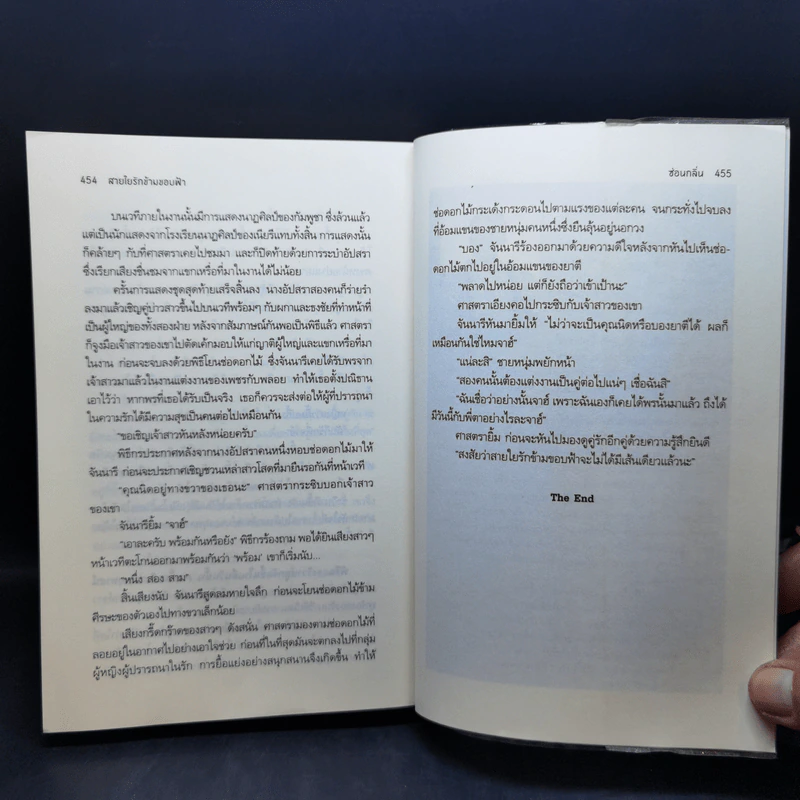 454 สายใยรักข้ามขอบฟ้า
บนเวทีภายในงานนั้นมีการแสดงนาฏศิลป์ของกัมพูชา ซึ่งล้วนแล้ว
แต่เป็นนักแสดงจากโรงเรียนนาฏศิลป์ของเนียรีแทบทั้งสิ้น การแสดงนั้น
ก็คล้ายๆ กับที่ศาสตราเคยไปชมมา และก็ปิดท้ายด้วยการระบำอัปสรา
ซึ่งเรียกเสียงชื่นชมจากแขกเหรื่อที่มาในงานได้ไม่น้อย
ครั้นการแสดงชุดสุดท้ายเสร็จสิ้นลง นางอัปสราสองคนก็ร่ายรำ
ลงมาแล้วเชิญคู่บ่าวสาวขึ้นไปบนเวทีพร้อมๆ กับผกาและธงชัยที่ทำหน้าที่
เป็นผู้ใหญ่ของทั้งสองฝ่าย หลังจากสัมภาษณ์กันพอเป็นพิธีแล้ว ศาสตรา
ก็จูงมือเจ้าสาวของเขาไปตัดเค้กมอบให้แก่ญาติผู้ใหญ่และแขกเหรื่อที่มา
ในงาน ก่อนจะจบลงด้วยพิธีโยนช่อดอกไม้ ซึ่งจันนารีเคยได้รับพรจาก
เจ้าสาวมาแล้วในงานแต่งงานของเพชรกับพลอย ทำให้เธอตั้งปณิธาน
เอาไว้ว่า หากพรที่เธอได้รับเป็นจริง เธอก็ควรจะส่งต่อให้ผู้ที่ปรารถนา
ในความรักได้มีความสุขเป็นคนต่อไปเหมือนกัน
“ขอเชิญเจ้าสาวหันหลังหน่อยครับ”
พิธีกรประกาศหลังจากนางอัปสราคนหนึ่งหอบช่อดอกไม้มาให้
จันนารี ก่อนจะประกาศเชิญชวนเหล่าสาวโสดที่มายืนรอกันที่หน้าเวที
“คุณนิดอยู่ทางขวาของเธอนะ” ศาสตรากระซิบบอกเจ้าสาว
ของเขา
จันนารียิ้ม “จาฮ์”
“เอาละครับ พร้อมกันหรือยัง” พิธีกรร้องถาม พอได้ยินเสียงสาวๆ
หน้าเวทีตะโกนออกมาพร้อมกันว่า ‘พร้อม’ เขาก็เริ่มนับ...
“หนึ่ง สอง สาม”
สิ้นเสียงนับ จันนารีสูดลมหายใจลึก ก่อนจะโยนช่อดอกไม้ข้าม
ศีรษะของตัวเองไปทางขวาเล็กน้อย
เสียงกรี๊ดกร๊าดของสาวๆ ดังสนั่น ศาสตรามองตามช่อดอกไม้ที่
ลอยอยู่ในอากาศไปอย่างเอาใจช่วย ก่อนที่ในที่สุดมันจะตกลงไปที่กลุ่ม
ผู้หญิงผู้ปรารถนาในรัก การยื้อแย่งอย่างสนุกสนานจึงเกิดขึ้น ทำให้
ซ่อนกลิ่น 455
ช่อดอกไม้กระเด้งกระดอนไปตามแรงของแต่ละคน จนกระทั่งไปจบลง
ที่อ้อมแขนของชายหนุ่มคนหนึ่งซึ่งยืนลุ้นอยู่นอกวง
“บอง” จันนารีร้องออกมาด้วยความดีใจหลังจากหันไปเห็นช่อ-
ดอกไม้ตกไปอยู่ในอ้อมแขนของยาตี
“พลาดไปหน่อย แต่ก็ยังถือว่าเข้าเป้านะ”
ศาสตราเอียงคอไปกระซิบกับเจ้าสาวของเขา
จันนารีหันมายิ้มให้ “ไม่ว่าจะเป็นคุณนิดหรือบองยาตีได้ ผลก็
เหมือนกันใช่ไหมจาฮ์”
“แน่ละสิ” ชายหนุ่มพยักหน้า
“สองคนนั้นต้องแต่งงานเป็นคู่ต่อไปแน่ๆ เชื่อฉันสิ”
“ฉันเชื่อว่าอย่างนั้นจาฮ์ เพราะฉันเองก็เคยได้พรนั้นมาแล้ว ถึงได้
มีวันนี้กับพี่ตาอย่างไรละจาฮ์”
ศาสตรายิ้ม ก่อนจะหันไปมองดูคู่รักอีกคู่ด้วยความรู้สึกยินดี
“สงสัยว่าสายใยรักข้ามขอบฟ้าจะไม่ได้มีเส้นเดียวแล้วนะ”
The End